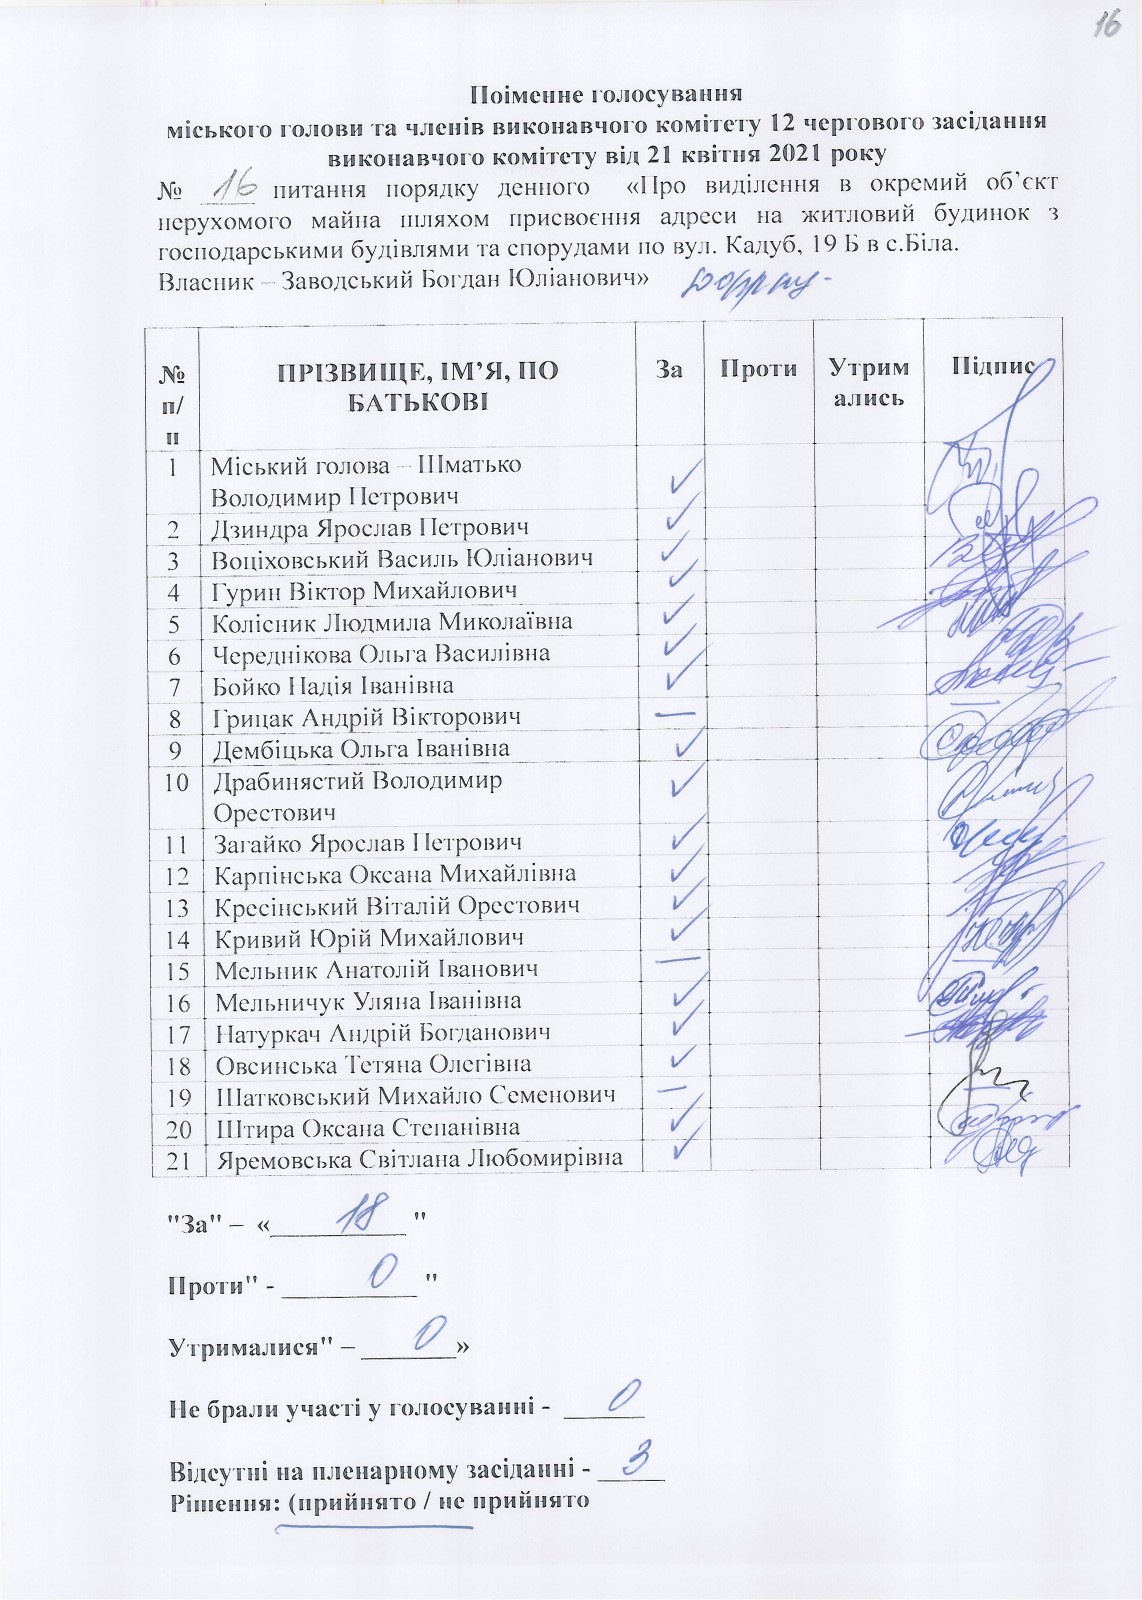 16
Поіменне голосування
міського голови та членів виконавчого комітету 12 чергового засідання
виконавчого комітету від 21 квітня 2021 року
№ 16 питання порядку денного «Про виділення в окремий об’єкт
нерухомого майна шляхом присвоєння адреси на житловий будинок з
господарськими будівлями та спорудами по вул. Кадуб, 19 Б в с.Біла.
Власник – Заводський Богдан Юліанович»
№ п/п ПРІЗВИЩЕ, ІМ’Я, ПО БАТЬКОВІ За Проти Утрим ались Підпис
1 Міський голова – Шматько
Володимир Петрович ✓
2 Дзиндра Ярослав Петрович ✓
3 Воціховський Василь Юліанович ✓
4 Гурин Віктор Михайлович ✓
5 Колісник Людмила Миколаївна ✓
6 Череднікова Ольга Василівна ✓
7 Бойко Надія Іванівна ✓
8 Грицак Андрій Вікторович —
9 Дембіцька Ольга Іванівна ✓
10 Драбинястий Володимир
Орестович ✓
11 Загайко Ярослав Петрович ✓
12 Карпінська Оксана Михайлівна ✓
13 Кресінський Віталій Орестович ✓
14 Кривий Юрій Михайлович ✓
15 Мельник Анатолій Іванович —
16 Мельничук Уляна Іванівна ✓
17 Натуркач Андрій Богданович ✓
18 Овсинська Тетяна Олегівна ✓
19 Шатковський Михайло Семенович —
20 Штира Оксана Степанівна ✓
21 Яремовська Світлана Любомирівна ✓
"За" – « 18 "
Проти" - 0 "
Утрималися" – 0 »
Не брали участі у голосуванні - 0
Відсутні на пленарному засіданні - 3
Рішення: (прийнято / не прийнято